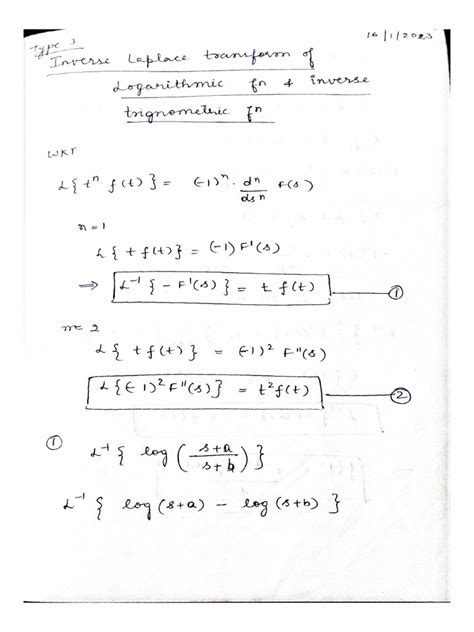 Type 3
16/1/2023
Inverse Laplace transform of
Logarithmic fn & inverse
trignometric fn
WKT
L{t^n f(t)} = (-1)^n . d^n/ds^n F(s)
n=1
L{t f(t)} = (-1) F'(s)
⇒ L^-1 {-F'(s)} = t f(t) ①
n=2
L{t f(t)} = (-1)^2 F''(s)
L{(-1)^2 F''(s)} = t^2 f(t) ②
① L^-1 { log ( s+a / s+b ) }
L^-1 { log (s+a) - log (s+b) }